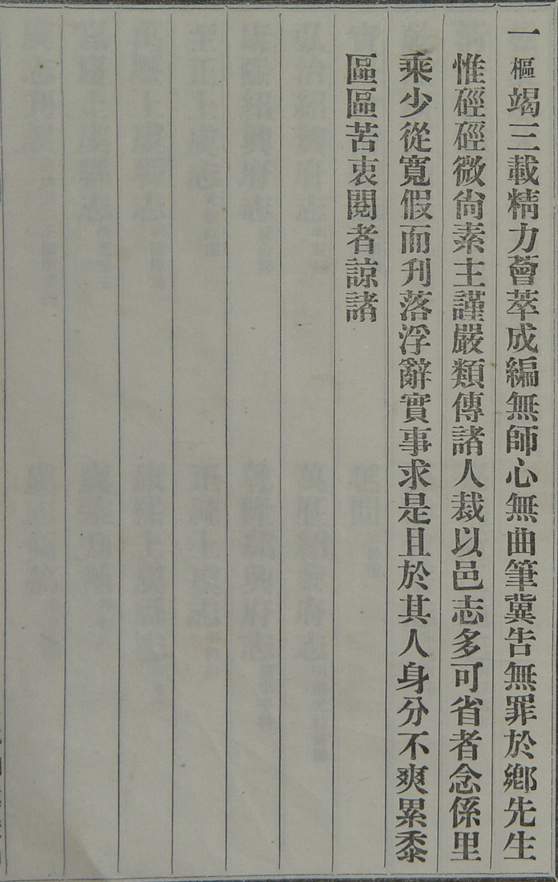 一樞竭三載精力薈萃成編無師心無曲筆冀告無罪於鄉先生
惟硜硜微尙素主謹嚴類傳諸人裁以邑志多可省者念係里
乘少從寬假而刋落浮辭實事求是且於其人身分不爽累黍
區區苦衷閱者諒諸